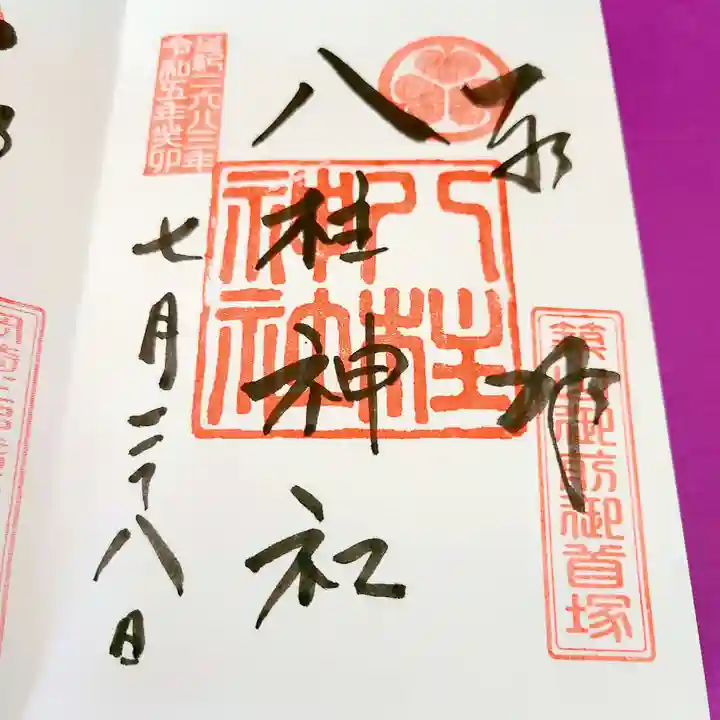 奉拝
築山御前御首塚
八柱神社
八柱神社
皇紀二六八三年
令和五年癸卯
七月二十八日